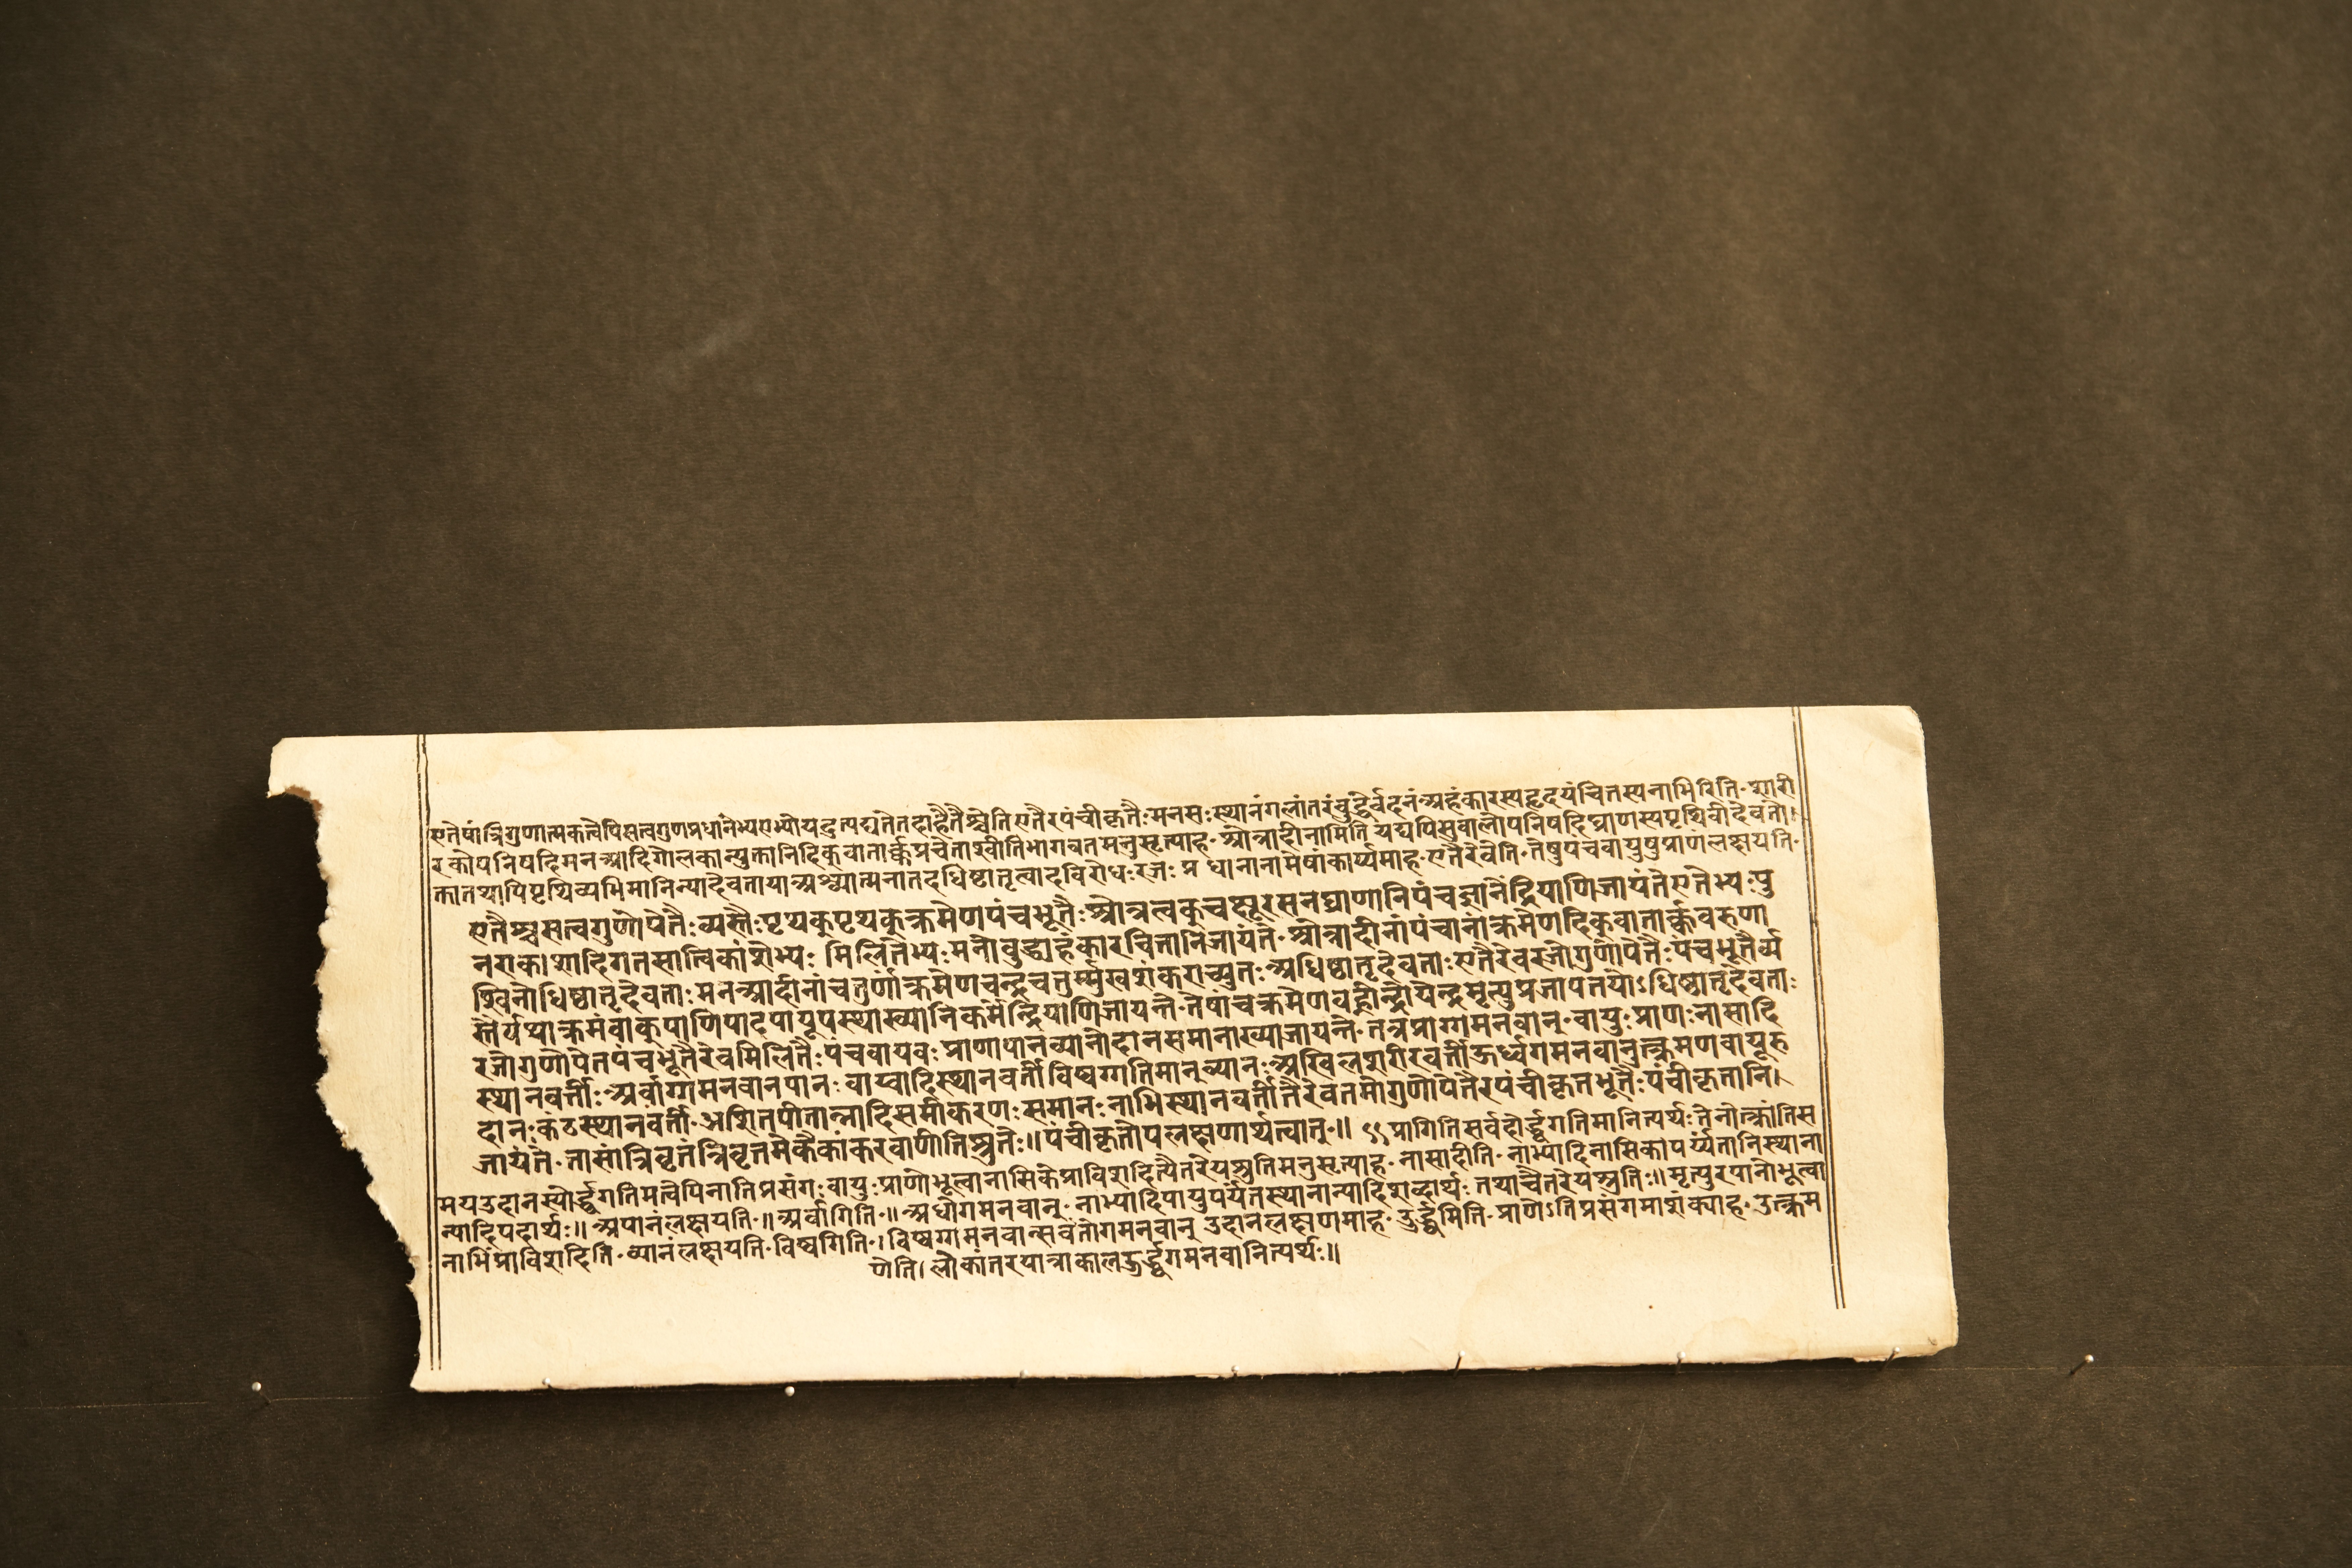 एतेषांत्रिगुणात्मकत्वेपिसत्वगुणप्रधानेभ्यएभ्योयदुत्पद्यतेतदाहैतैश्चेतिएतैरपंचीकृतैःमनसःस्थानंगलांतरंबुद्धेर्वदनंअहंकारस्यहृदयंचितस्यनाभिरिति॰शारी
रकोपनिषदिमनआदिगोलकान्युक्तानिदिक्वातार्क्कप्रचेताश्वीतिभागवतमनुसृत्याह॰श्रोत्रादीनामिति यद्यपिसुबालोपनिषदिघ्राणस्यपृथिवीदेवतो।
क्तातथापिपृथिव्यभिमानिन्यादेवतायाअश्व्यात्मनातदधिष्ठातृत्वादविरोधःरजः प्र धानानामेषांकार्य्यमाह॰एतैरेवेति॰तेषुपंचवायुषुप्राणंलक्षयति॰
एतैश्चसत्वगुणोपेतैःव्यस्तैःपृथक्पृथक्क्रमेणपंचभूतैःश्रोत्रत्वक्चक्षूरसनघ्राणानिपंचज्ञानेंद्रियाणिजायंतेएतेभ्यःपु
नराकाशादिगतसात्विकांशेभ्यः मिलितेभ्यःमनोबुद्ध्यहंकारचित्तानिजायंते॰श्रोत्रादीनांपंचानांक्रमेणदिक्वातार्क्कवरुणा
श्विनोधिष्ठातृदेवताःमनआदीनांचतुर्णांक्रमेणचन्द्रचतुर्म्मुखशंकराच्युतःअधिष्ठातृदेवताःएतैरेवरजोगुणोपेतैःपंचभूतैर्व्य
स्तैर्यथाक्रमंवाक्पाणिपादपायूपस्थाख्यानिकर्मेन्द्रियाणिजायन्ते॰तेषांचक्रमेणवह्नीन्द्रोपेन्द्रमृत्युप्रजापतयोऽधिष्ठातृदेवताः
रजोगुणोपेतपंचभूतैरेवमिलितैःपंचवायवः प्राणापानव्यानोदानसमानाख्याजायन्ते॰तत्रप्राग्गमनवान्॰वायुःप्राणःनासादि
स्थानवर्त्तीःअर्वाग्गामनवानपानः वाय्वादिस्थानवर्तीविष्वग्गतिमान्व्यानःअखिलशरीरवर्तीऊर्ध्वगमनवानुत्क्रमणवायूरु
दानःकंठस्थानवर्त्ती॰अशितपीतान्नादिसमीकरणःसमानःनाभिस्थानवर्तीतैरेवतमोगुणोपेतैरपंचीकृतभूतैःपंचीकृतानि।
जायंते॰तासांत्रिवृतंत्रिवृतमेकैकांकरवाणीतिश्रुतेः॥पंचीकृतोपलक्षणार्थत्वात्॰॥ ९९प्रागितिसर्वहोर्द्ध्वगतिमानित्यर्थःतेनोत्क्रांतिस
मयउदानस्योर्द्ध्वगतिमत्वेपिनातिप्रसंगःवायुःप्राणोभूत्वानासिकेप्राविशदित्यैतरेयश्रुतिमनुसृत्याह॰नासादीति॰नाभ्यादिनासिकापर्य्यंतानिस्थाना
न्यादिपदार्थः॥अपानंलक्षयति॰॥अर्वागिति॰॥अधोगमनवान्॰नाभ्यादिपायुपर्यंतस्थानान्यादिशब्दार्थः तथाचैतरेयश्रुतिः॥मृत्युरपानोभूत्वा
नाभिंप्राविशदिति॰व्यानंलक्षयति॰विष्वगिति॰।विष्वग्गामनवान्सर्वतोगमनवान् उदानलक्षणमाह॰उर्द्ध्वमिति॰प्राणेऽतिप्रसंगमाशंक्याह॰उत्क्रम
णेति।लोकांतरयात्राकालऊर्द्ध्वगमनवानित्यर्थः॥